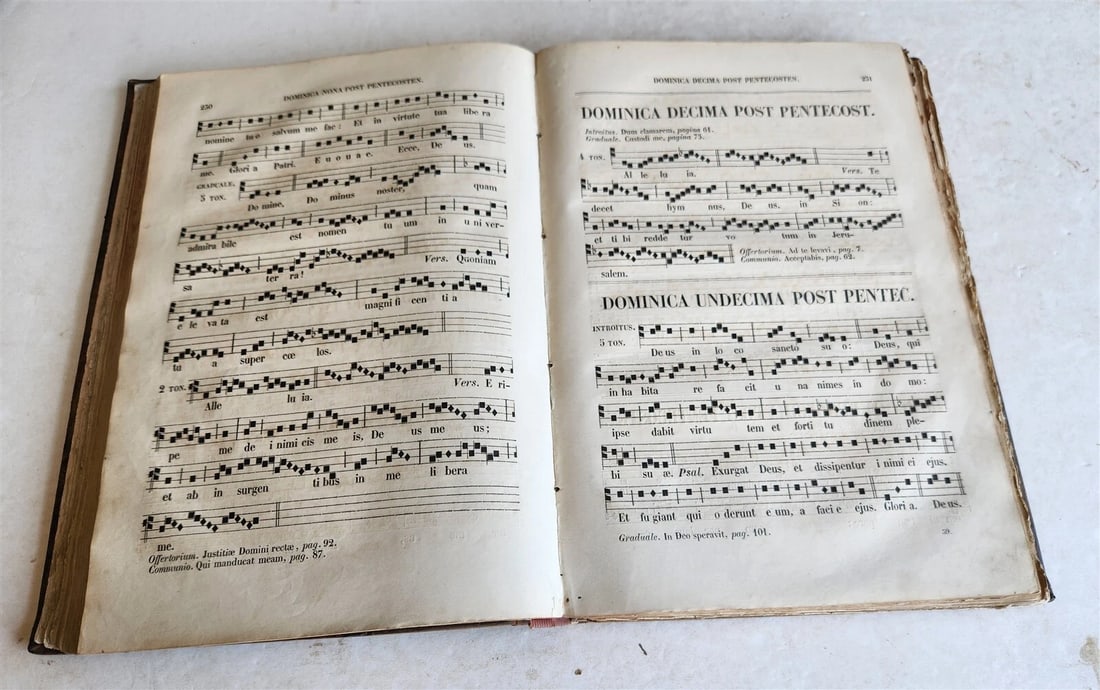 230
DOMINICA NONA POST PENTECOSTEN.
nomine tuo salvum me fac: Et in virtute tua libe ra
me. Glori a Patri. E u o u a e. Ecce, De us.
GRADUALE.
5 TON.
Do mine, Do minus noster, quam
admira bile est nomen tu um in u ni ver-
sa ter ra! Vers. Quoniam
e le va ta est magni fi cen ti a
tu a super cœ los.
2 TON.
Alle lu ia. Vers. E ri-
pe me de i nimi cis me is, De us me us;
et ab in surgen ti bus in me li bera
me.
Offertorium. Justitiæ Domini rectæ, pag. 92.
Communio. Qui manducat meam, pag. 87.
DOMINICA DECIMA POST PENTECOSTEN.
231
DOMINICA DECIMA POST PENTECOST.
Introitus. Dum clamarem, pagina 61.
Graduale. Custodi me, pagina 75.
4 TON.
Al le lu ia. Vers. Te
decet hym nus, De us, in Si on:
et ti bi redde tur vo tum in Jeru-
salem.
Offertorium. Ad te levavi, pag. 7.
Communio. Acceptabis, pag. 62.
DOMINICA UNDECIMA POST PENTEC.
INTROITUS.
5 TON.
De us in lo co sancto su o: Deus, qui
in ha bita re fa cit u na nimes in do mo:
ipse dabit virtu tem et forti tu dinem ple-
bi su æ. Psal. Exurgat Deus, et dissipentur i nimi ci ejus.
Et fu giant qui o derunt e um, a faci e ejus. Glori a. De us.
Graduale. In Deo speravit, pag. 101.